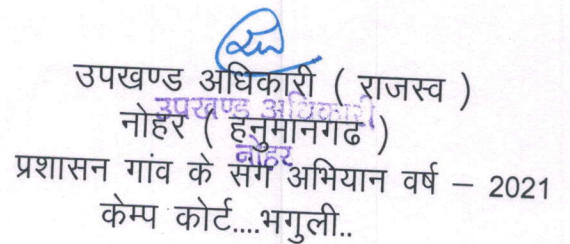 उपखण्ड अधिकारी ( राजस्व )
उपखण्ड अधिकारी
नोहर ( हनुमानगढ )
नोहर
प्रशासन गांव के संग अभियान वर्ष – 2021
केम्प कोर्ट....भगुली..